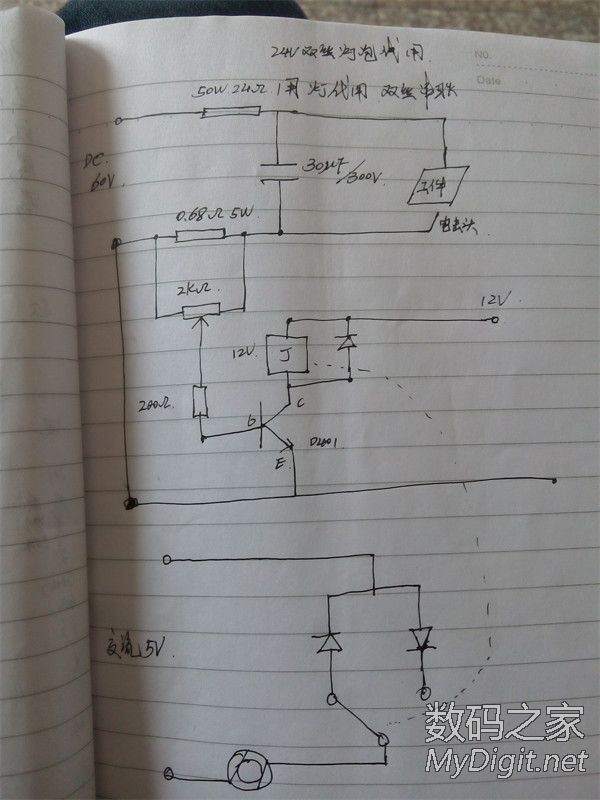 24V双丝灯泡代用
NO.
Date
50W 24Ω 用灯代用 双丝串联
DC
60V
30μF/300V
工件
电击头
0.68Ω 5W
2KΩ
12V
12V
J
200Ω
b
C
E
交流5V
数码之家
MyDigit.net